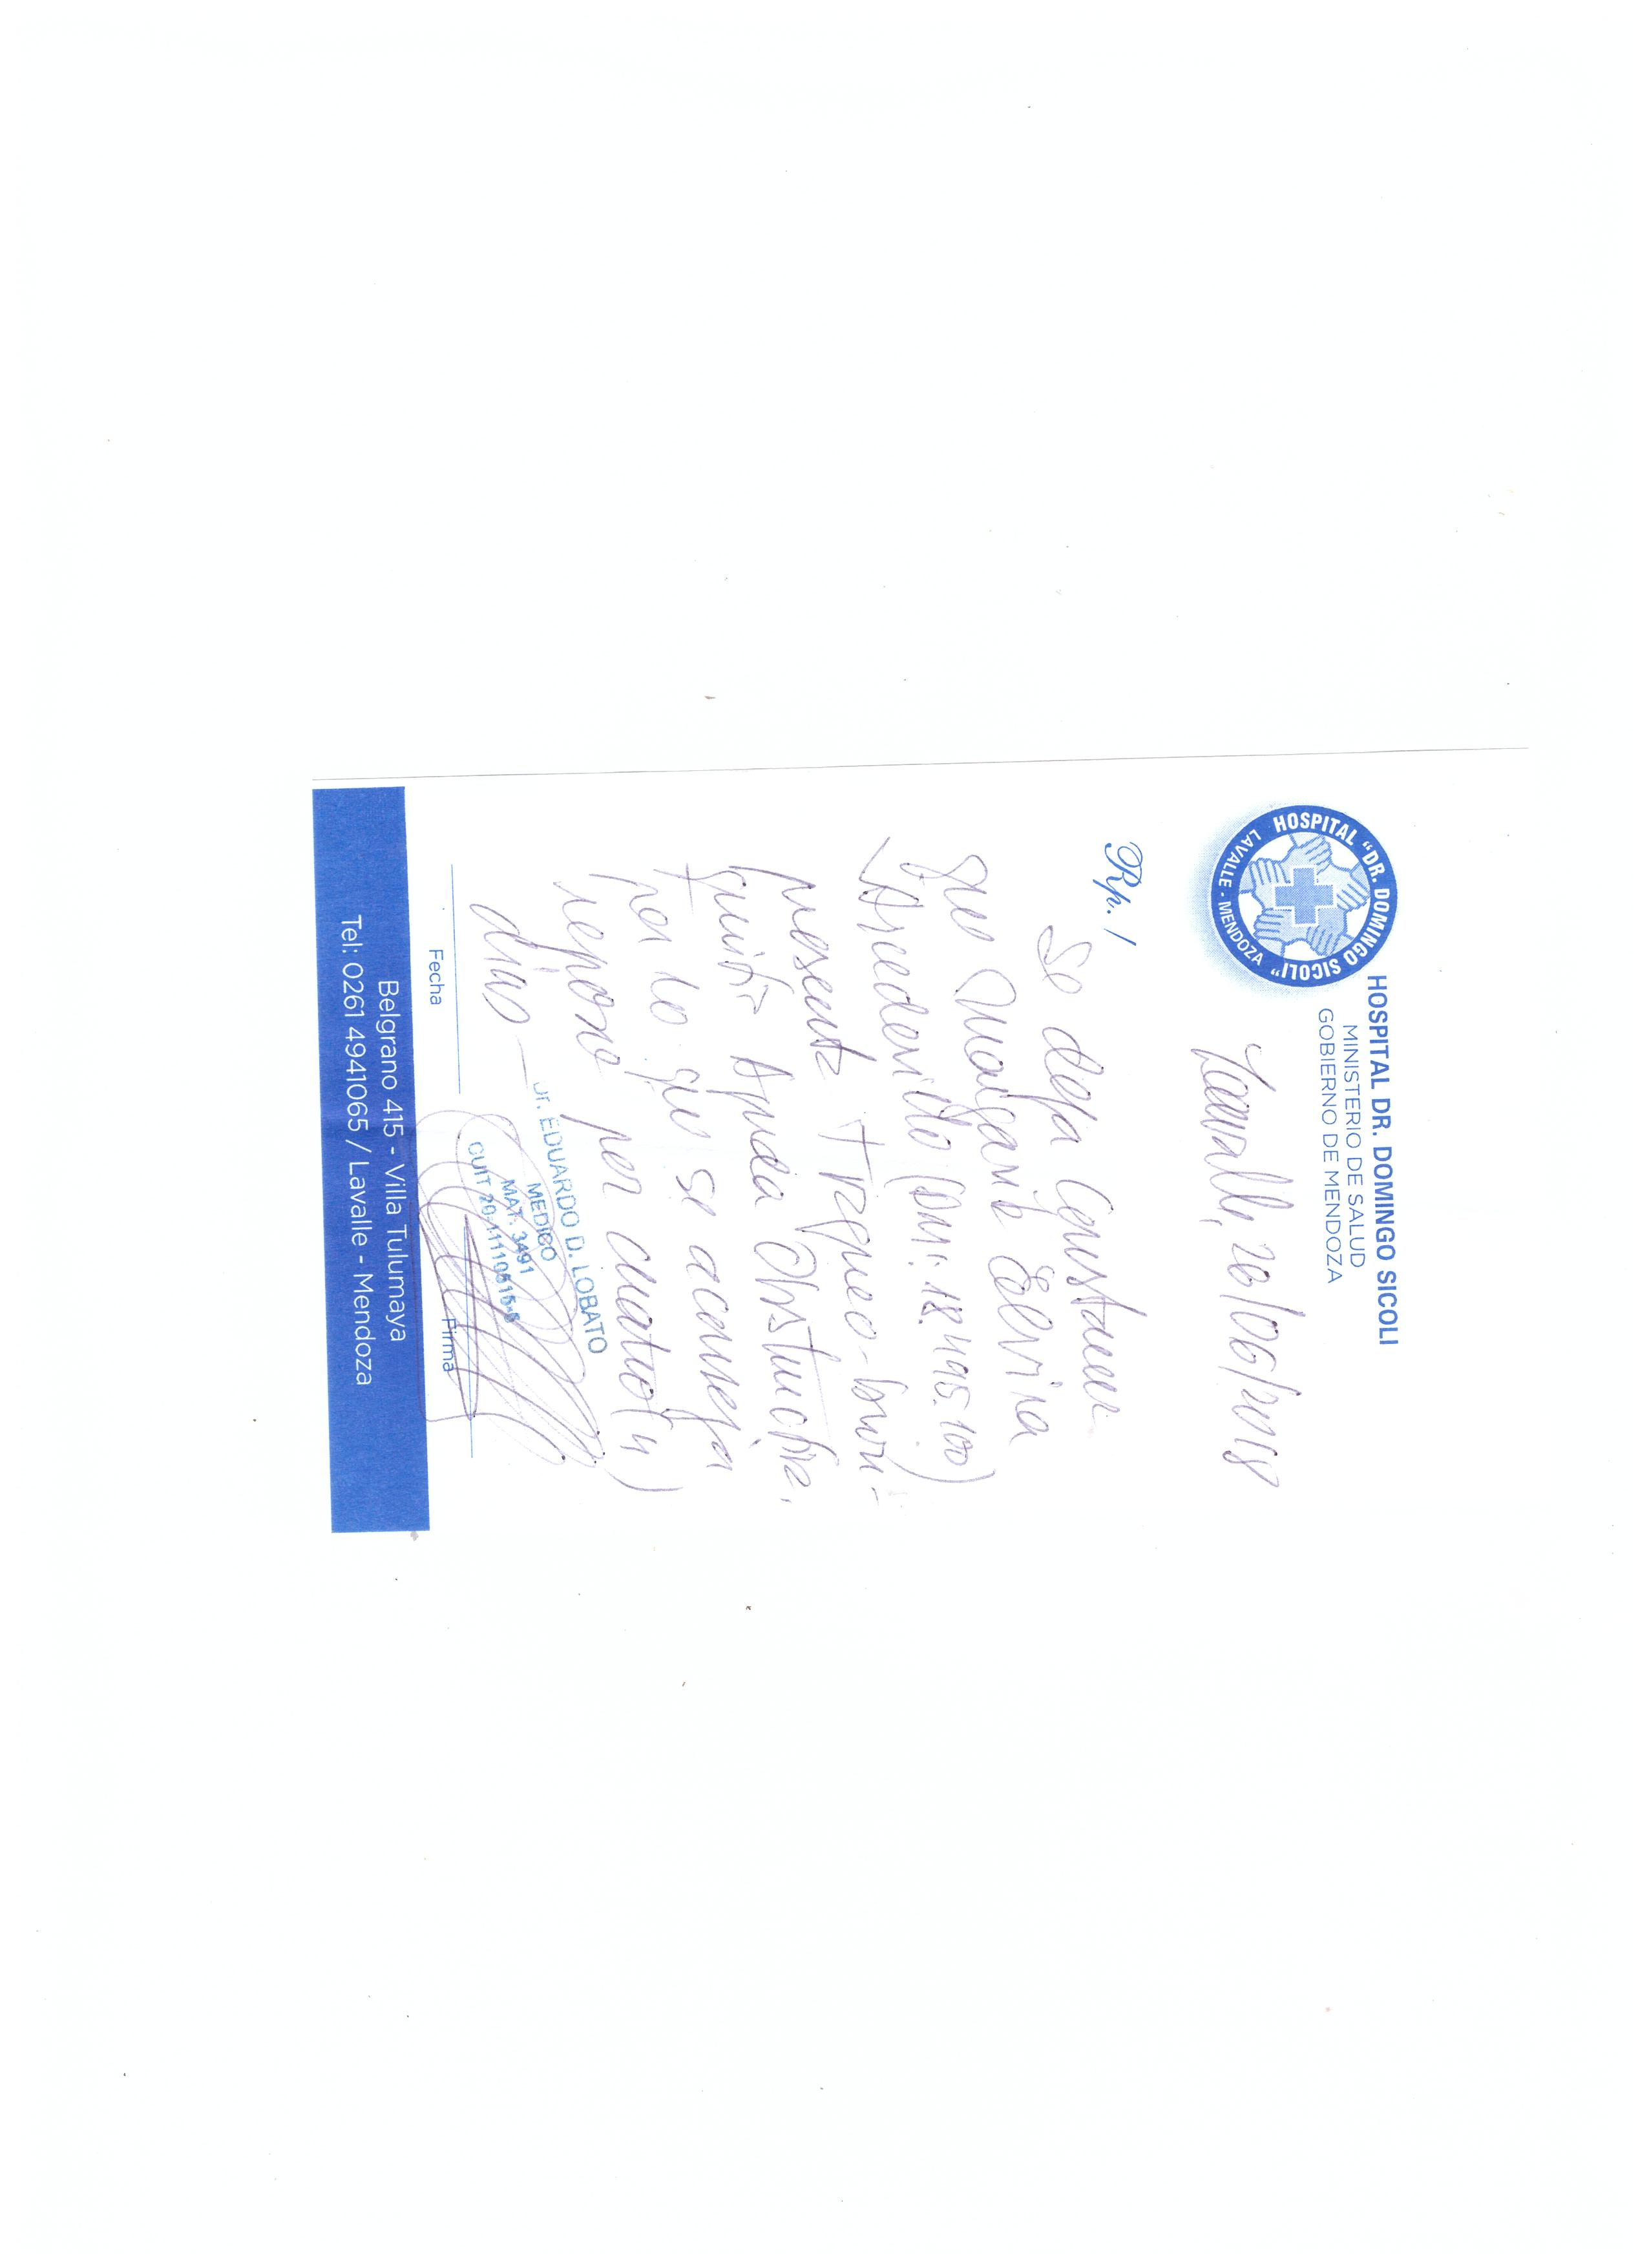 HOSPITAL "DR. DOMINGO SICOLI"
LAVALLE - MENDOZA
HOSPITAL DR. DOMINGO SICOLI
MINISTERIO DE SALUD
GOBIERNO DE MENDOZA
Lavalle, 26/06/2018
Rp. /
Se deja constancia
que Margarita Elvira
(DNI: 18.495.100)
presenta Traqueo-bron-
quitis Aguda Obstructiva,
por lo que se aconseja
reposo por cuatro (4)
días
Dr. EDUARDO D. LOBATO
MEDICO
MAT. 3491
CUIT
Fecha
Firma
Belgrano 415 - Villa Tulumaya
Tel: 0261 4941065 / Lavalle - Mendoza